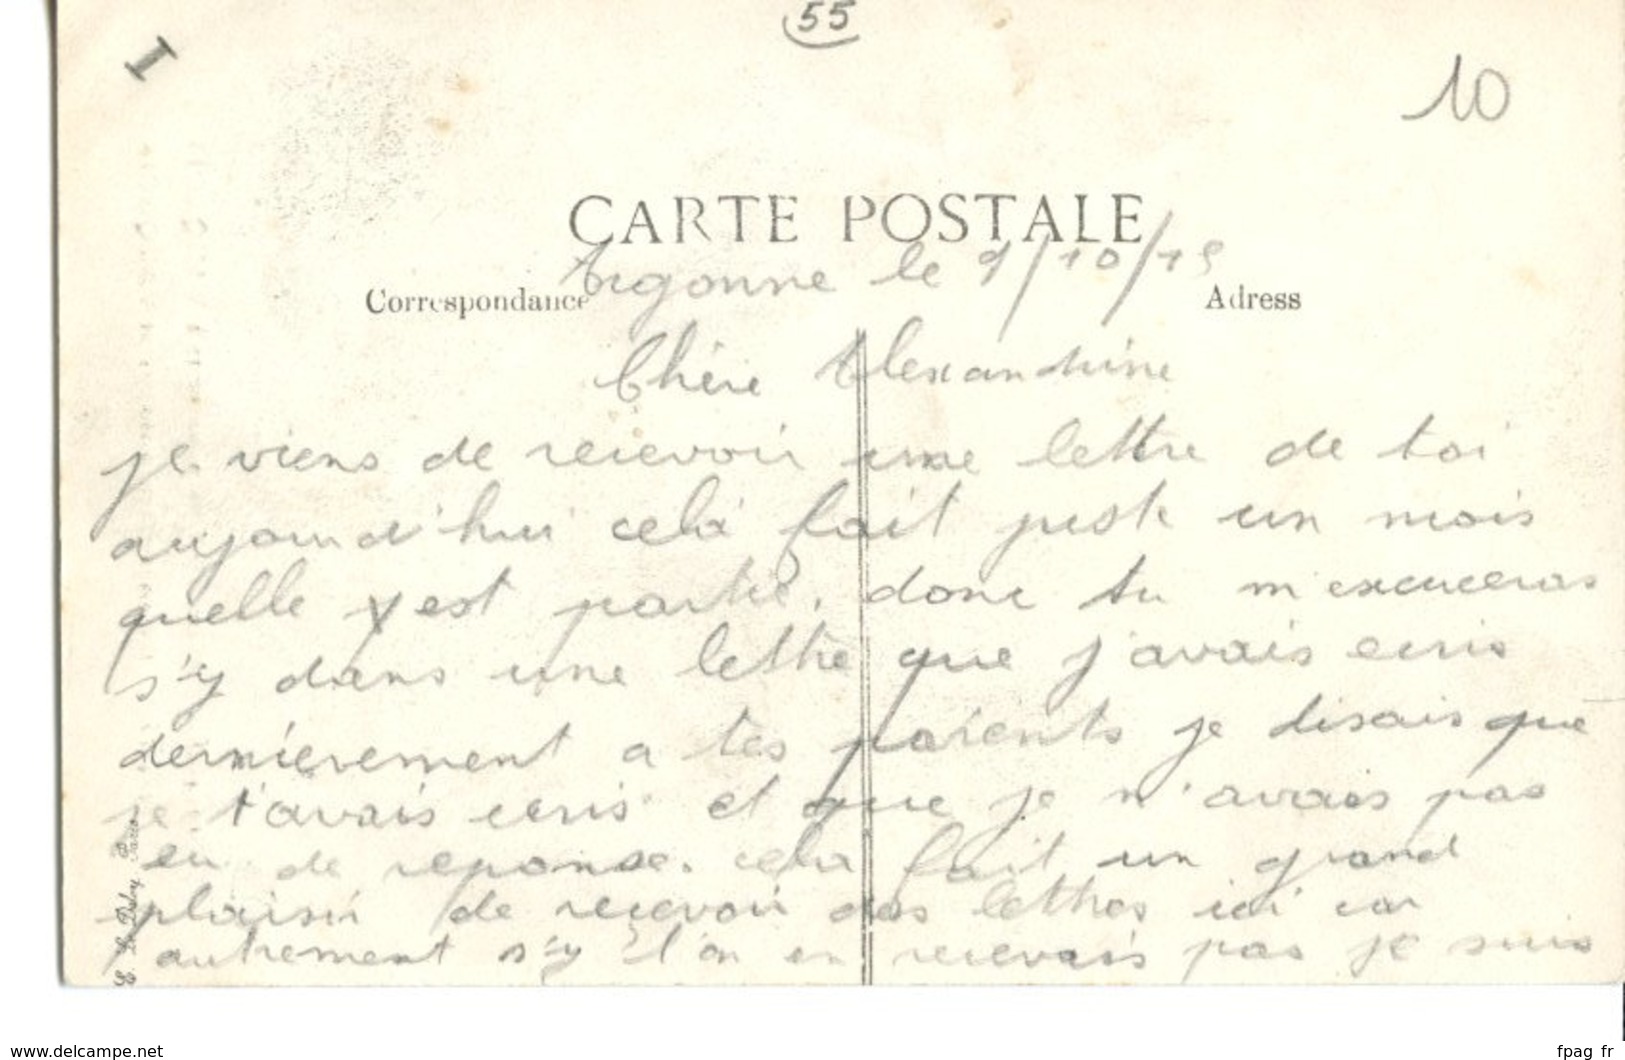 55
I
10
CARTE POSTALE
Argonne le 9/10/15
Correspondance
Adress
Chère Alexandrine
je viens de recevoir une lettre de toi
aujourd'hui celà fait juste un mois
quelle y est partie, donc tu m'excuceras
s'y dans une lettre que j'avais ecris
dernièrement a tes parents je disais que
je t'avais ecris et que je n'avais pas
eu de reponse. cela fait un grand
plaisir de recevoir des lettres ici car
autrement s'y l'on en recevais pas je suis
Paris
www.delcampe.net
fpag_fr